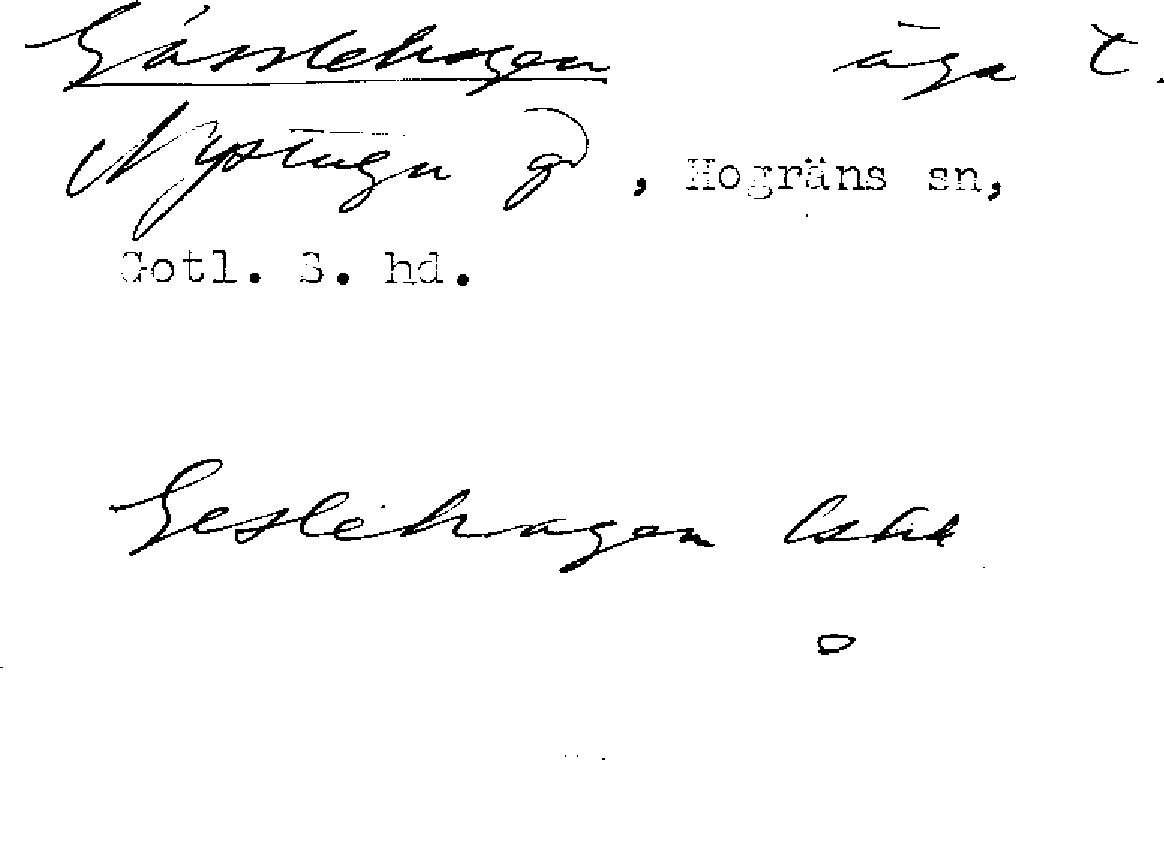 Gässlehagen äga t.
Nystugu gd, Hogräns sn,
Gotl. S. hd.
Geslehagen